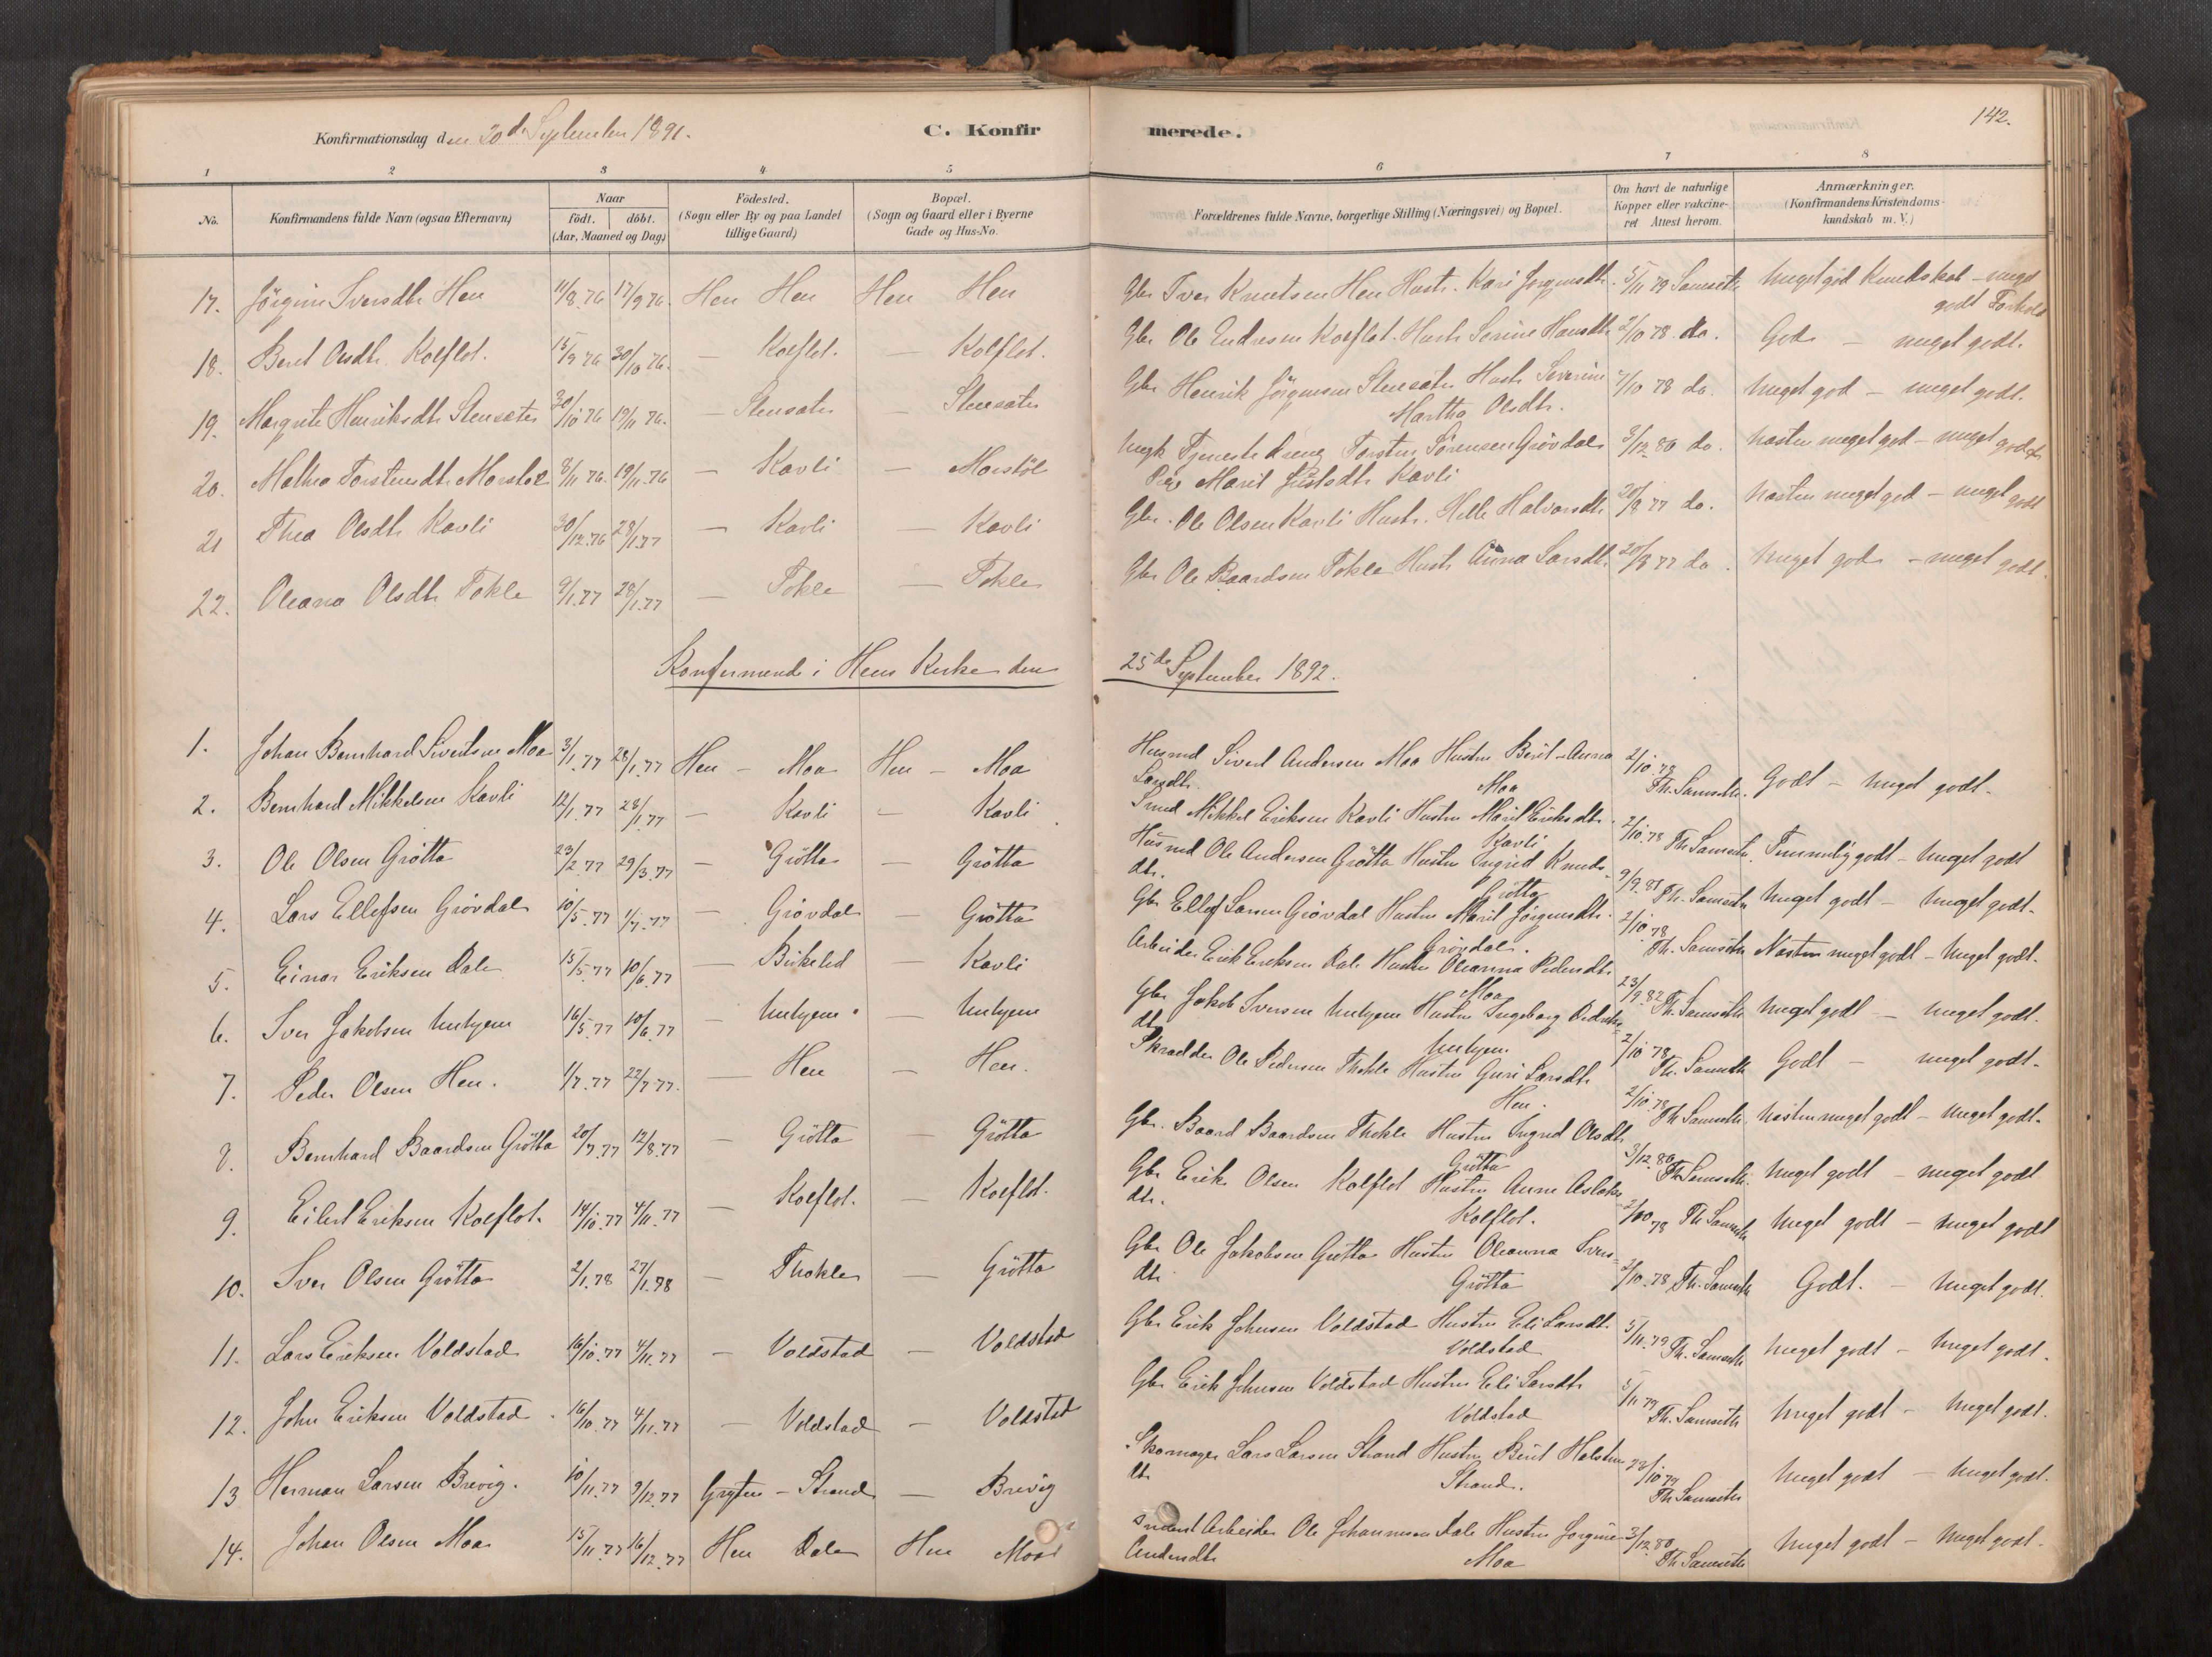 142.
Konfirmationsdag den 20de September 1891.
C. Konfirmerede.
1 2 3 4 5 6 7 8
No. Konfirmandens fulde Navn (ogsaa Efternavn) Naar födt. döbt. (Aar, Maaned og Dag) Födested. (Sogn eller By og paa Landet tillige Gaard) Bopæl. (Sogn og Gaard eller i Byerne Gade og Hus-No. Forældrenes fulde Navne, borgerlige Stilling (Næringsvei) og Bopæl. Om havt de naturlige Kopper eller vakcineret Attest herom. Anmærkninger. (Konfirmandens Kristendomskundskab m. V.)
17. Jörgine Iversdtr Hen 11/8.76 17/9 76. Hen Hen Hen Hen Gbr Iver Knutsen Hen Hustr. Kari Jørgensdtr. 5/11 79 Samsæth Meget god Kundskab - meget godt Forhold
18. Beret Olsdtr. Kolflot. 15/9 76 30/10 76. — Kolflot. — Kolflot. Gbr Ole Endresen Kolflot. Hustr Serine Hansdtr 2/10 78. do. God — meget godt.
19. Margrete Henriksdtr Stensæter 30/10 76 19/11 76. — Stensæter — Stensæter Gbr Henrik Jörgensen Stensæter Hustr Severine 2/10 78 do. Meget god — meget godt.
Martha Olsdtr.
20. Mathea Torstensdtr Morstøl 8/11 76. 19/11. 76 — Kavli — Morstöl Ungk Tjenestedreng Torsten Sørensen Grövdal 3/12 80 do. Næsten meget god — meget godt
Pige Marit Justsdtr Kavli
21 Thea Olsdtr Kavli 30/12.76 28/1.77 — Kavli — Kavli Gbr. Ole Olsen Kavli Hustr. Helle Halvorsdtr 20/8 77 do. Næsten meget god — meget godt
22. Oleana Olsdtr Tokle 9/1.77 28/1.77 — Tokle — Tokle Gbr Ole Baardsen Tokle Hustr Anna Larsdtr 20/8 77 do. Meget god — meget godt.
Konfirmerede i Hens Kirke den 25de September 1892.
1. Johan Bernhard Sivertsen Moa 3/1.77 28/1.77 Hen — Moa Hen — Moa Husmd Sivert Andersen Moa Hustru Berit-Anna 2/10.78
Larsdtr. Moa Th. Samseth. Godt — Meget godt.
2. Bernhard Mikkelsen Kavli 12/1.77 28/1.77 — Kavli — Kavli Smed Mikkel Eriksen Kavli Hustru Marit Eriksdtr. 2/10.78
Kavli Th Samseth. Temmelig godt — Meget godt
3. Ole Olsen Grötta 23/2.77 29/3.77 — Grötta — Grötta Husmd Ole Andersen Grötta Hustru Ingrid Knuds- 9/9.81
dtr. Grötta Th. Samseth Meget godt — Meget godt.
4. Lars Ellefsen Grövdal 10/5.77 1/7.77 — Grövdal — Grötta Gbr Ellef Larsen Grövdal Hustru Marit Jörgensdtr. 2/10.78
Grövdal. Th. Samseth Næsten meget godt — Meget godt.
5. Einar Eriksen Dale 15/5.77 10/6.77 — Birkeled — Kavli Arbeider Erik Eriksen Dale Hustru Oleanna Pedersdtr 23/9.82
Moa Th. Samseth Meget godt — Meget godt.
6. Iver Jakobsen Unhjem 16/5.77 10/6.77 — Unhjem — Unhjem Gbr Jakob Iversen Unhjem Hustru Ingeborg Didriks- 2/10 78
dtr Unhjem. Th. Samseth Godt — meget godt.
7. Peder Olsen Hen. 1/7.77 22/7 77. — Hen — Hen. Skrædder Ole Pedersen Thokle Hustru Guri Larsdtr 2/10.78
Hen. Th Samseth. Næsten meget godt — Meget godt.
8. Bernhard Baardsen Grötta 20/7.77 12/8.77 — Grötta — Grötta Gbr. Baard Baardsen Thokle Hustru Ingrid Olsdtr 3/12.80
Grötta Th Samseth. Meget godt — meget godt
9. Eilert Eriksen Kolflot. 14/10.77 4/11.77 — Kolflot. — Kolflot. Gbr Erik Olsen Kolflot Hustru Anne Aslaks-
dtr. Kolflot. 2/10 78 Th Samseth Meget godt — Meget godt
10. Iver Olsen Grötta 2/1.78 27/1.78 — Thokle — Grötta Gbr Ole Jakobsen Grötta Hustru Oleanna Ivers-
dtr Grötta 2/10.78 Th. Samseth Godt. — Meget godt.
11. Lars Eriksen Voldstad 16/10.77 4/11.77 — Voldstad — Voldstad Gbr Erik Johnsen Voldstad Hustru Eli Larsdtr 5/11.79
Voldstad Th. Samseth Meget godt — Meget godt.
12. John Eriksen Voldstad 16/10.77 4/11.77 — Voldstad — Voldstad Gbr Erik Johnsen Voldstad Hustru Eli Larsdtr 5/11 79
Voldstad Th. Samseth Meget godt — Meget godt.
13 Herman Larsen Brevig. 10/11.77 9/12.77 Gryten — Strand — Brevig Skomager Lars Larsen Strand Hustru Berit Halsten
dtr Strand. 23/10 79 Th Samseth Meget godt — Meget godt.
14. Johan Olsen Moa 15/11.77 16/12.77 Hen Dale Hen Moa Arbeider Ole Johannesen Dale Hustru Jørgine 3/12.80
Andersdtr Moa Th. Samseth Meget godt — Meget godt.